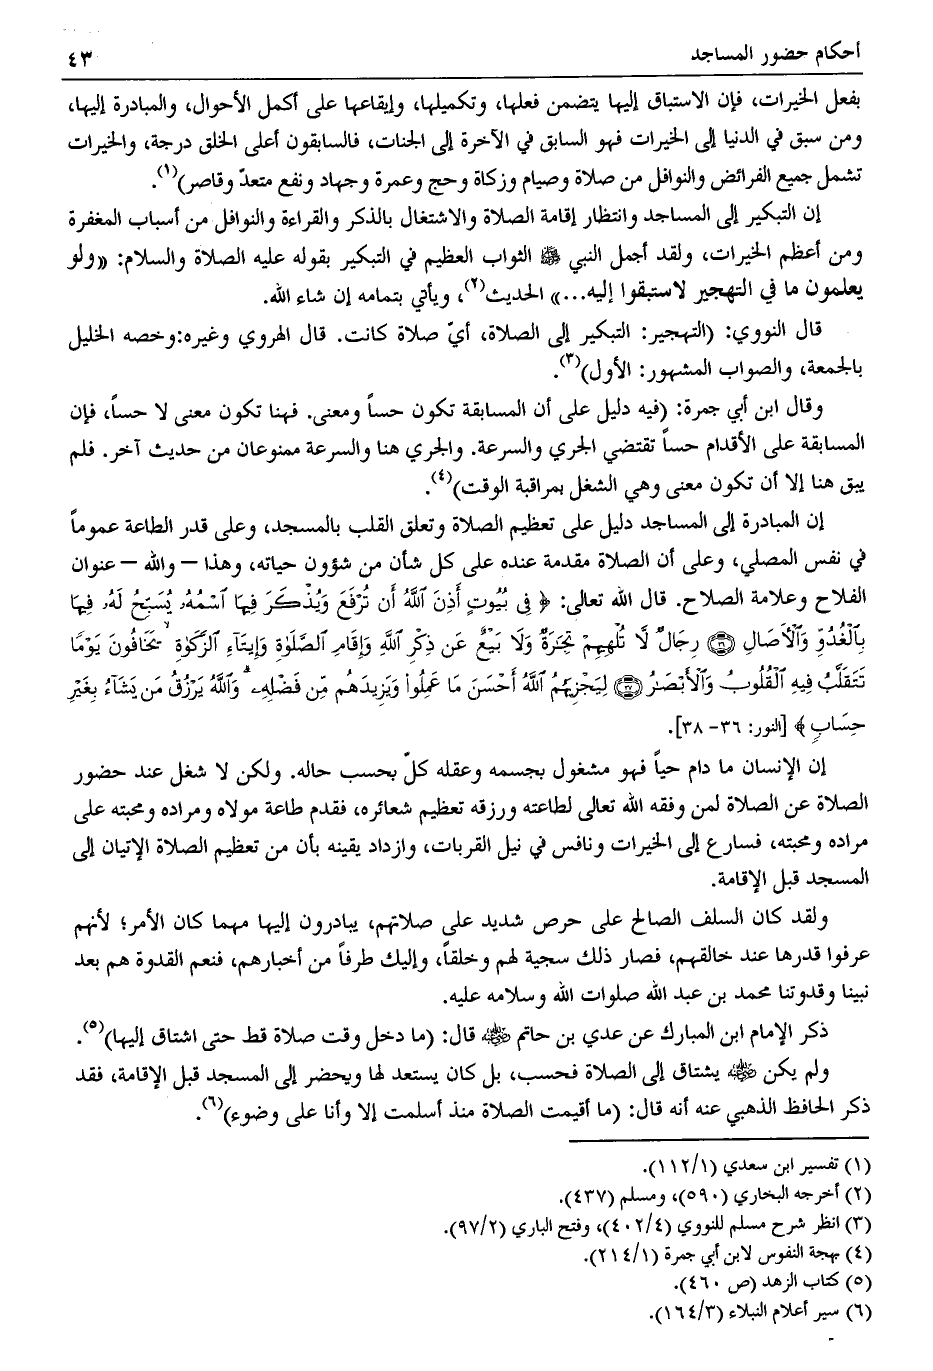 أحكام حضور المساجد
٤٣
بفعل الخيرات، فإن الاستباق إليها يتضمن فعلها، وتكميلها، وإيقاعها على أكمل الأحوال، والمبادرة إليها،
ومن سبق في الدنيا إلى الخيرات فهو السابق في الآخرة إلى الجنات، فالسابقون أعلى الخلق درجة، والخيرات
تشمل جميع الفرائض والنوافل من صلاة وصيام وزكاة وحج وعمرة وجهاد ونفع متعدّ وقاصر)(١).
إن التبكير إلى المساجد وانتظار إقامة الصلاة والاشتغال بالذكر والقراءة والنوافل من أسباب المغفرة
ومن أعظم الخيرات، ولقد أجمل النبي ﷺ الثواب العظيم في التبكير بقوله عليه الصلاة والسلام: «ولو
يعلمون ما في التهجير لاستبقوا إليه...» الحديث(٢)، ويأتي بتمامه إن شاء الله.
قال النووي: (التهجير: التبكير إلى الصلاة، أيّ صلاة كانت. قال الهروي وغيره:وخصه الخليل
بالجمعة، والصواب المشهور: الأول)(٣).
وقال ابن أبي جمرة: (فيه دليل على أن المسابقة تكون حساً ومعنى. فهنا تكون معنى لا حساً، فإن
المسابقة على الأقدام حساً تقتضي الجري والسرعة. والجري هنا والسرعة ممنوعان من حديث آخر. فلم
يبق هنا إلا أن تكون معنى وهي الشغل بمراقبة الوقت)(٤).
إن المبادرة إلى المساجد دليل على تعظيم الصلاة وتعلق القلب بالمسجد، وعلى قدر الطاعة عموماً
في نفس المصلي، وعلى أن الصلاة مقدمة عنده على كل شأن من شؤون حياته، وهذا – والله – عنوان
الفلاح وعلامة الصلاح. قال الله تعالى: ﴿ فِي بُيُوتٍ أَذِنَ ٱللَّهُ أَن تُرْفَعَ وَيُذْكَرَ فِيهَا ٱسْمُهُۥ يُسَبِّحُ لَهُۥ فِيهَا
بِٱلْغُدُوِّ وَٱلْأَصَالِ ۝٣٦ رِجَالٌ لَّا تُلْهِيهِمْ تِجَٰرَةٌ وَلَا بَيْعٌ عَن ذِكْرِ ٱللَّهِ وَإِقَامِ ٱلصَّلَوٰةِ وَإِيتَآءِ ٱلزَّكَوٰةِ ۙ يَخَافُونَ يَوْمًا
تَتَقَلَّبُ فِيهِ ٱلْقُلُوبُ وَٱلْأَبْصَٰرُ ۝٣٧ لِيَجْزِيَهُمُ ٱللَّهُ أَحْسَنَ مَا عَمِلُوا۟ وَيَزِيدَهُم مِّن فَضْلِهِۦ ۗ وَٱللَّهُ يَرْزُقُ مَن يَشَآءُ بِغَيْرِ
حِسَابٍ ﴾ [النور: ٣٦- ٣٨].
إن الإنسان ما دام حياً فهو مشغول بجسمه وعقله كلّ بحسب حاله. ولكن لا شغل عند حضور
الصلاة عن الصلاة لمن وفقه الله تعالى لطاعته ورزقه تعظيم شعائره، فقدم طاعة مولاه ومراده ومحبته على
مراده ومحبته، فسارع إلى الخيرات ونافس في نيل القربات، وازداد يقينه بأن من تعظيم الصلاة الإتيان إلى
المسجد قبل الإقامة.
ولقد كان السلف الصالح على حرص شديد على صلاتهم، يبادرون إليها مهما كان الأمر؛ لأنهم
عرفوا قدرها عند خالقهم، فصار ذلك سجية لهم وخلقاً، وإليك طرفاً من أخبارهم، فنعم القدوة هم بعد
نبينا وقدوتنا محمد بن عبد الله صلوات الله وسلامه عليه.
ذكر الإمام ابن المبارك عن عدي بن حاتم رضي الله عنه قال: (ما دخل وقت صلاة قط حتى اشتاق إليها)(٥).
ولم يكن رضي الله عنه يشتاق إلى الصلاة فحسب، بل كان يستعد لها ويحضر إلى المسجد قبل الإقامة، فقد
ذكر الحافظ الذهبي عنه أنه قال: (ما أقيمت الصلاة منذ أسلمت إلا وأنا على وضوء)(٦).
(١) تفسير ابن سعدي (١١٢/١).
(٢) أخرجه البخاري (٥٩٠)، ومسلم (٤٣٧).
(٣) انظر شرح مسلم للنووي (٤٠٢/٤)، وفتح الباري (٩٧/٢).
(٤) بهجة النفوس لابن أبي جمرة (٢١٤/١).
(٥) كتاب الزهد (ص ٤٦٠).
(٦) سير أعلام النبلاء (١٦٤/٣).